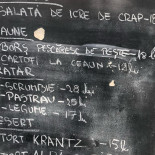 SALATA DE ICRE DE CRAP-18
AUNE
BORȘ PESCĂRESC DE PEȘTE-18 le
CARTOFI LA CEAUN-12 lei
ĂTAR
-SCRUMBIE -28 lei
-PASTRAV -25 h
-LEGUME -17 h
ESERT
TORT KRANTZ -15 le
TORT